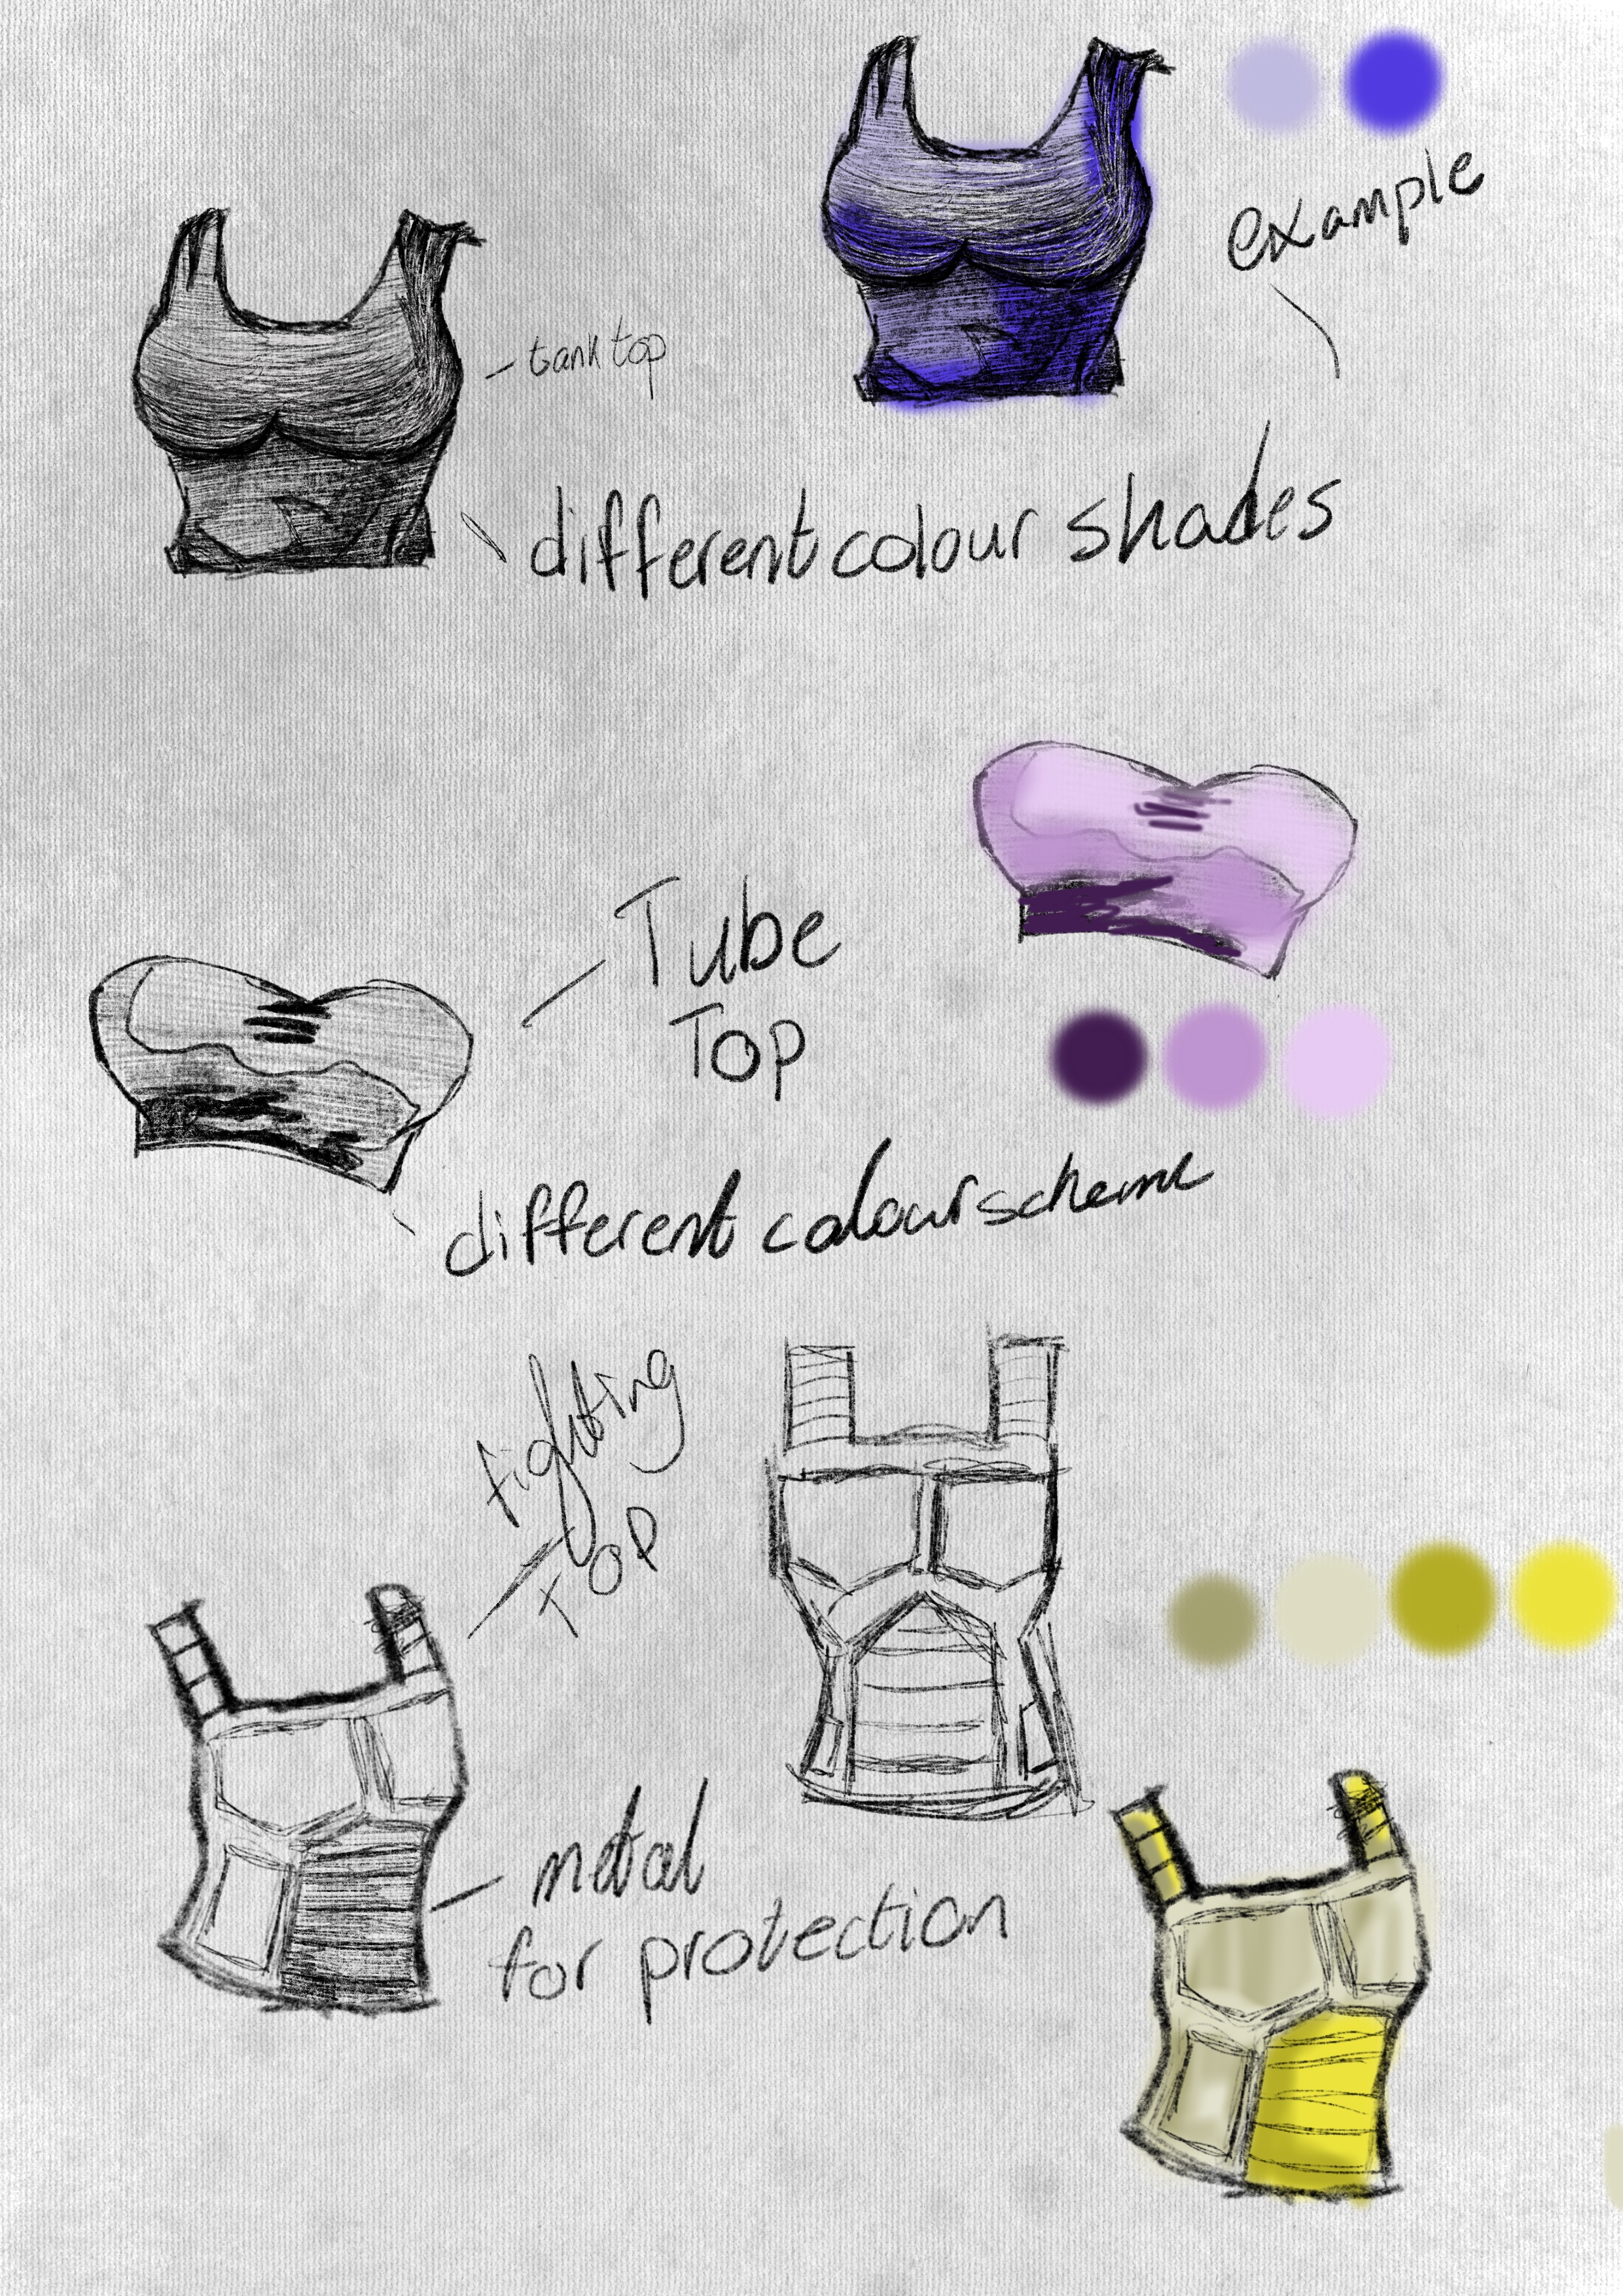 example
tank top
different colour shades
Tube
Top
different colour scheme
fighting
TOP
metal
for protection